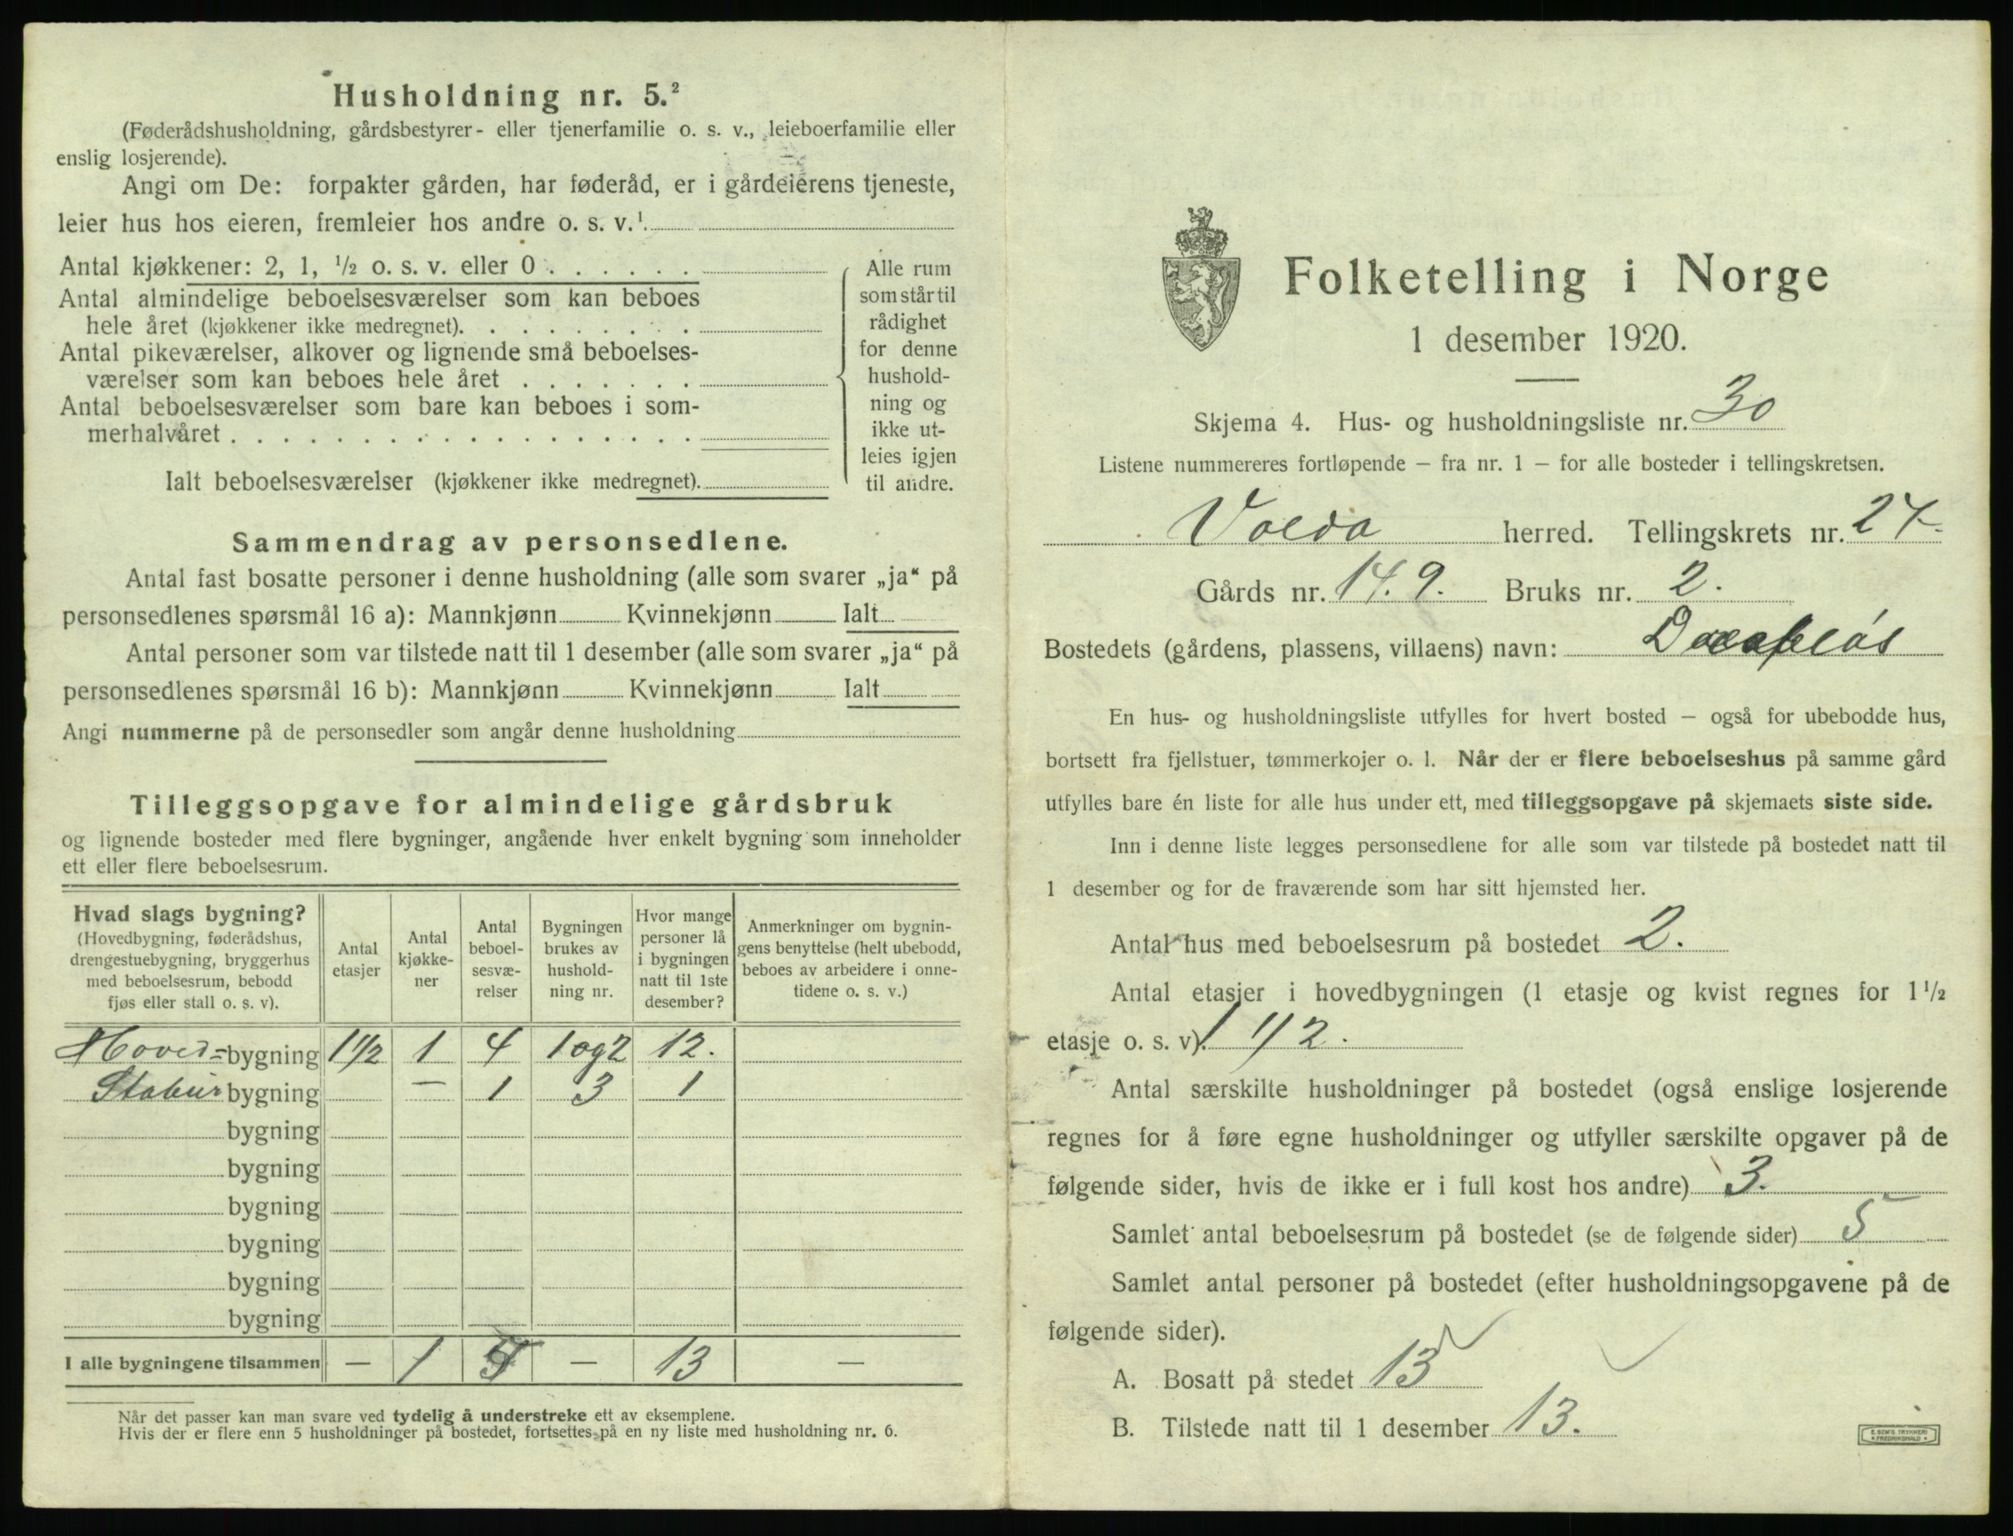 Husholdning nr. 5.²
(Føderådshusholdning, gårdsbestyrer- eller tjenerfamilie o. s. v., leieboerfamilie eller
enslig losjerende).
Angi om De: forpakter gården, har føderåd, er i gårdeierens tjeneste,
leier hus hos eieren, fremleier hos andre o. s. v.¹
Antal kjøkkener: 2, 1, ½ o. s. v. eller 0 . . . . . .
Antal almindelige beboelsesværelser som kan beboes
hele året (kjøkkener ikke medregnet). . . . . . . . .
Antal pikeværelser, alkover og lignende små beboelses-
værelser som kan beboes hele året . . . . . . .
Antal beboelsesværelser som bare kan beboes i som-
merhalvåret . . . . . . . . . . . . . . . . . .
Ialt beboelsesværelser (kjøkkener ikke medregnet).
Alle rum
som står til
rådighet
for denne
hushold-
ning og
ikke ut-
leies igjen
til andre.
Sammendrag av personsedlene.
Antal fast bosatte personer i denne husholdning (alle som svarer „ja“ på
personsedlenes spørsmål 16 a): Mannkjønn Kvinnekjønn Ialt
Antal personer som var tilstede natt til 1 desember (alle som svarer „ja“ på
personsedlenes spørsmål 16 b): Mannkjønn Kvinnekjønn Ialt
Angi nummerne på de personsedler som angår denne husholdning
Tilleggsopgave for almindelige gårdsbruk
og lignende bosteder med flere bygninger, angående hver enkelt bygning som inneholder
ett eller flere beboelsesrum.
Hvad slags bygning?
(Hovedbygning, føderådshus,
drengestuebygning, bryggerhus
med beboelsesrum, bebodd
fjøs eller stall o. s. v).
Antal
etasjer
Antal
kjøkke-
ner
Antal
beboel-
sesvæ-
relser
Bygningen
brukes av
hushold-
ning nr.
Hvor mange
personer lå
i bygningen
natt til 1ste
desember?
Anmerkninger om bygnin-
gens benyttelse (helt ubebodd,
beboes av arbeidere i onne-
tidene o. s. v.)
Hoved=bygning 1 1/2 1 4 1 og 2 12.
Stabur bygning — 1 3 1
bygning
bygning
bygning
bygning
bygning
bygning
I alle bygningene tilsammen — 1 5 — 13 —
Når det passer kan man svare ved tydelig å understreke ett av eksemplene.
Hvis der er flere enn 5 husholdninger på bostedet, fortsettes på en ny liste med husholdning nr. 6.
Folketelling i Norge
1 desember 1920.
Skjema 4. Hus- og husholdningsliste nr. 30
Listene nummereres fortløpende — fra nr. 1 — for alle bosteder i tellingskretsen.
Volda herred. Tellingskrets nr. 24
Gårds nr. 149. Bruks nr. 2.
Bostedets (gårdens, plassens, villaens) navn:
En hus- og husholdningsliste utfylles for hvert bosted — også for ubebodde hus,
bortsett fra fjellstuer, tømmerkojer o. l. Når der er flere beboelseshus på samme gård
utfylles bare én liste for alle hus under ett, med tilleggsopgave på skjemaets siste side.
Inn i denne liste legges personsedlene for alle som var tilstede på bostedet natt til
1 desember og for de fraværende som har sitt hjemsted her.
Antal hus med beboelsesrum på bostedet 2.
Antal etasjer i hovedbygningen (1 etasje og kvist regnes for 1½
etasje o. s. v). 1 1/2.
Antal særskilte husholdninger på bostedet (også enslige losjerende
regnes for å føre egne husholdninger og utfyller særskilte opgaver på de
følgende sider, hvis de ikke er i full kost hos andre) 3.
Samlet antal beboelsesrum på bostedet (se de følgende sider) 5
Samlet antal personer på bostedet (efter husholdningsopgavene på de
følgende sider).
A. Bosatt på stedet 13
B. Tilstede natt til 1 desember 13.
E. SEM'S TRYKKERI
FREDRIKSHALD